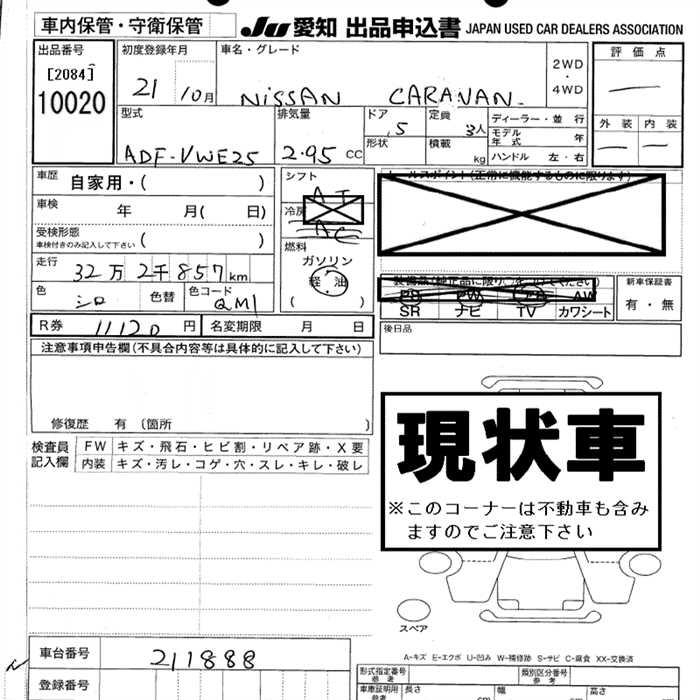 車内保管・守衛保管
JU 愛知 出品申込書 JAPAN USED CAR DEALERS ASSOCIATION
出品番号
[2084]
10020
初度登録年月
21 10月
車名・グレード
NISSAN CARAVAN
2WD
・
4WD
評価点
外装 内装
型式
ADF-VWE25
排気量
2.95 CC
ドア
5
形状
定員
3人
積載
kg
ディーラー・並行
モデル年式 年
ハンドル 左・右
車歴
自家用・( )
車検
年 月( 日)
受検形態
車検付きのみ記入して下さい
( )
走行
32万2千857km
色
シロ
色替
色コード
QM1
シフト
AT
冷房
AC
燃料
ガソリン
軽油
( )
セールスポイント(正常に機能するものに限ります)
PS PW AW
SR ナビ TV カワシート
新車保証書
有・無
R券 11120 円
名変期限 月 日
後日品
注意事項申告欄(不具合内容等は具体的に記入して下さい)
修復歴 有 (箇所 )
検査員記入欄
FW キズ・飛石・ヒビ割・リペア跡・X要
内装 キズ・汚レ・コゲ・穴・スレ・キレ・破レ
現状車
※このコーナーは不動車も含み
ますのでご注意下さい
スペア
A-キズ E-エクボ U-凹み W-補修跡 S-サビ C-腐食 XX-交換済
車台番号
211888
登録番号
型式指定番号
参考
類別区分番号
参考
車庫証明用
参考
長さ
cm
幅
cm
高さ
cm